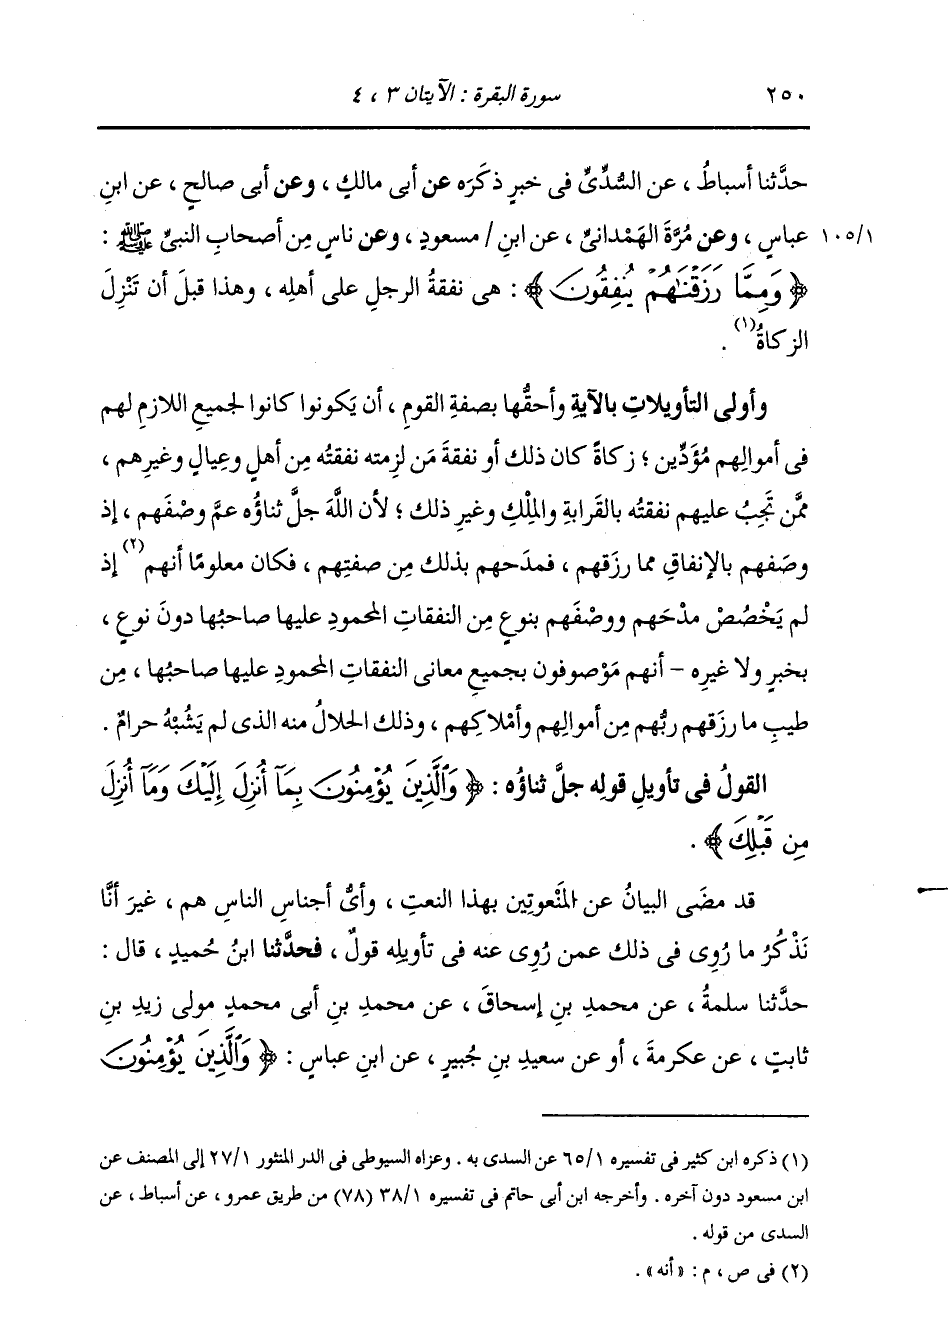 ٢٥٠ سورة البقرة : الآيتان ٣ ، ٤
حدَّثنا أسباطُ ، عن السُّدِّىِّ فى خبرٍ ذكَرَه عن أبى مالكٍ ، وعن أبى صالحٍ ، عن ابنِ
١٠٥/١ عباسٍ ، وعن مُرَّةَ الهَمْدانىِّ ، عن ابنِ / مسعودٍ ، وعن ناسٍ مِن أصحابِ النبىِّ ﷺ :
﴿ وَمِمَّا رَزَقْنَٰهُمْ يُنفِقُونَ ﴾ : هى نفقةُ الرجلِ على أهلِه ، وهذا قبلَ أن تَنْزِلَ
الزكاةُ(١) .
وأولى التأويلاتِ بالآيةِ وأحقُّها بصفةِ القومِ ، أن يَكونوا كانوا لجميعِ اللازمِ لهم
فى أموالِهم مُؤَدِّين ؛ زكاةً كان ذلك أو نفقةَ مَن لزِمته نفقتُه مِن أهلٍ وعِيالٍ وغيرِهم ،
ممَّن تَجِبُ عليهم نفقتُه بالقَرابةِ والمِلْكِ وغيرِ ذلك ؛ لأن اللَّهَ جلَّ ثناؤُه عمَّ وصْفَهم ، إذ
وصَفهم بالإنفاقِ مما رزَقهم ، فمدَحهم بذلك مِن صفتِهم ، فكان معلومًا أنهم(٢) إذ
لم يَخْصُصْ مدْحَهم ووصْفَهم بنوعٍ مِن النفقاتِ المحمودِ عليها صاحبُها دونَ نوعٍ ،
بخبرٍ ولا غيرِه – أنهم مَوْصوفون بجميعِ معانى النفقاتِ المحمودِ عليها صاحبُها ، مِن
طيبِ ما رزَقهم ربُّهم مِن أموالِهم وأمْلاكِهم ، وذلك الحلالُ منه الذى لم يَشُبْهُ حرامٌ .
القولُ فى تأويلِ قولِه جلَّ ثناؤُه : ﴿ وَٱلَّذِينَ يُؤْمِنُونَ بِمَآ أُنزِلَ إِلَيْكَ وَمَآ أُنزِلَ
مِن قَبْلِكَ ﴾ .
قد مضَى البيانُ عن المَنْعوتِين بهذا النعتِ ، وأىُّ أجناسِ الناسِ هم ، غيرَ أنَّا
نَذْكُرُ ما رُوِى فى ذلك عمن رُوِى عنه فى تأويلِه قولٌ ، فحدَّثنا ابنُ حُميدٍ ، قال :
حدَّثنا سلمةُ ، عن محمدِ بنِ إسحاقَ ، عن محمدِ بنِ أبى محمدٍ مولى زيدِ بنِ
ثابتٍ ، عن عكرمةَ ، أو عن سعيدِ بنِ جُبيرٍ ، عن ابنِ عباسٍ : ﴿ وَٱلَّذِينَ يُؤْمِنُونَ
(١) ذكره ابن كثير فى تفسيره ٦٥/١ عن السدى به . وعزاه السيوطى فى الدر المنثور ٢٧/١ إلى المصنف عن
ابن مسعود دون آخره . وأخرجه ابن أبى حاتم فى تفسيره ٣٨/١ (٧٨) من طريق عمرو ، عن أسباط ، عن
السدى من قوله .
(٢) فى ص ، م : « أنه » .